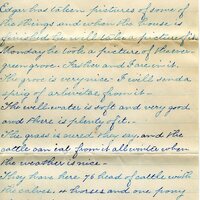 Edgar has taken pictures of some of
the things and when the house is
finished he will take a picture of it
Monday he took a picture of the ever
green grove. Father and I are in it.
The grove is very nice. I will send a
sprig of arbivetae from it.
The well water is soft and very good
and there is plenty of it.
The grass is cured, they say, and the
cattle can eat from it all winter when
the weather is nice.
They have here 76 head of cattle with
the calves, 4 horses and one pony